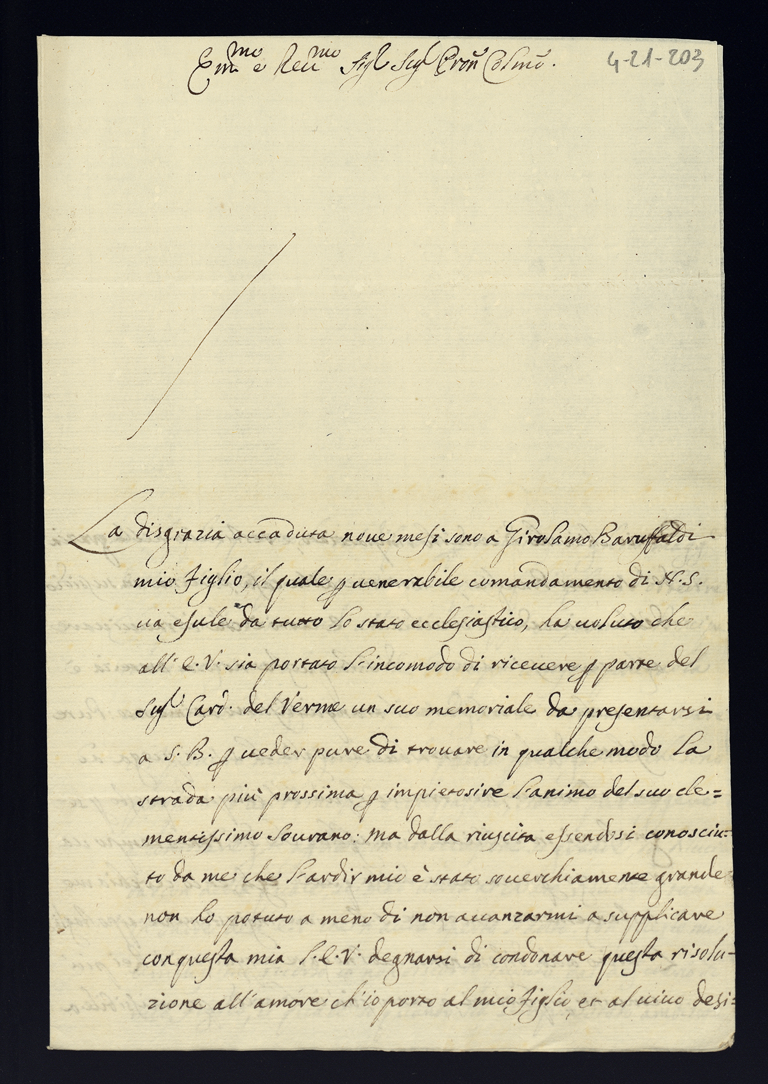 Em.mo e Reu.mo Sig.r Sig.r Pron Colmo.
4-21-203
La disgrazia accaduta noue mesi sono a Girolamo Baruffaldi
mio figlio, il quale p venerabile comandamento di N. S.
ua esule da tutto lo stato ecclesiastico, ha uoluto che
all' E. V. sia portato l'incomodo di riceuere p parte del
Sig.r Card. del Verme un suo memoriale da presentarsi
a S. B. p ueder pure di trouare in qualche modo la
strada più prossima p impietosire l'animo del suo cle=
mentissimo Sourano: ma dalla riuscita essendosi conosciu-
to da me che l'ardir mio è stato souerchiamente grande
non ho potuto a meno di non auanzarmi a supplicare
con questa mia l'E. V. degnarsi di condonare questa risolu-
zione all'amore ch'io porto al mio figlio, et al uiuo desi=